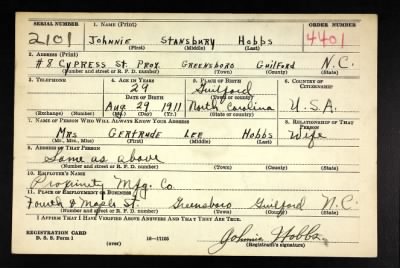 SERIAL NUMBER 1. NAME (Print) ORDER NUMBER
2101 JOHNNIE STANSBURY HOBBS 4401
(First) (Middle) (Last)
2. ADDRESS (Print)
#8 CYPRESS ST. PROX. GREENSBORO GUILFORD N.C.
(Number and street or R. F. D. number) (Town) (County) (State)
3. TELEPHONE 4. AGE IN YEARS 5. PLACE OF BIRTH 6. COUNTRY OF CITIZENSHIP
29 Guilford
DATE OF BIRTH (Town or county)
Aug 29 1911 North Carolina U.S.A.
(Exchange) (Number) (Mo.) (Day) (Yr.) (State or country)
7. NAME OF PERSON WHO WILL ALWAYS KNOW YOUR ADDRESS 8. RELATIONSHIP OF THAT PERSON
MRS GERTRUDE LEE HOBBS Wife
(Mr., Mrs., Miss) (First) (Middle) (Last)
9. ADDRESS OF THAT PERSON
Same as above
(Number and street or R. F. D. number) (Town) (County) (State)
10. EMPLOYER'S NAME
Proximity Mfg. Co
11. PLACE OF EMPLOYMENT OR BUSINESS
Fourth & Maple St. Greensboro Guilford N.C.
(Number and street or R. F. D. number) (Town) (County) (State)
I AFFIRM THAT I HAVE VERIFIED ABOVE ANSWERS AND THAT THEY ARE TRUE.
REGISTRATION CARD Johnnie Hobbs
D. S. S. Form 1 (over) 16—17105 (Registrant's signature)